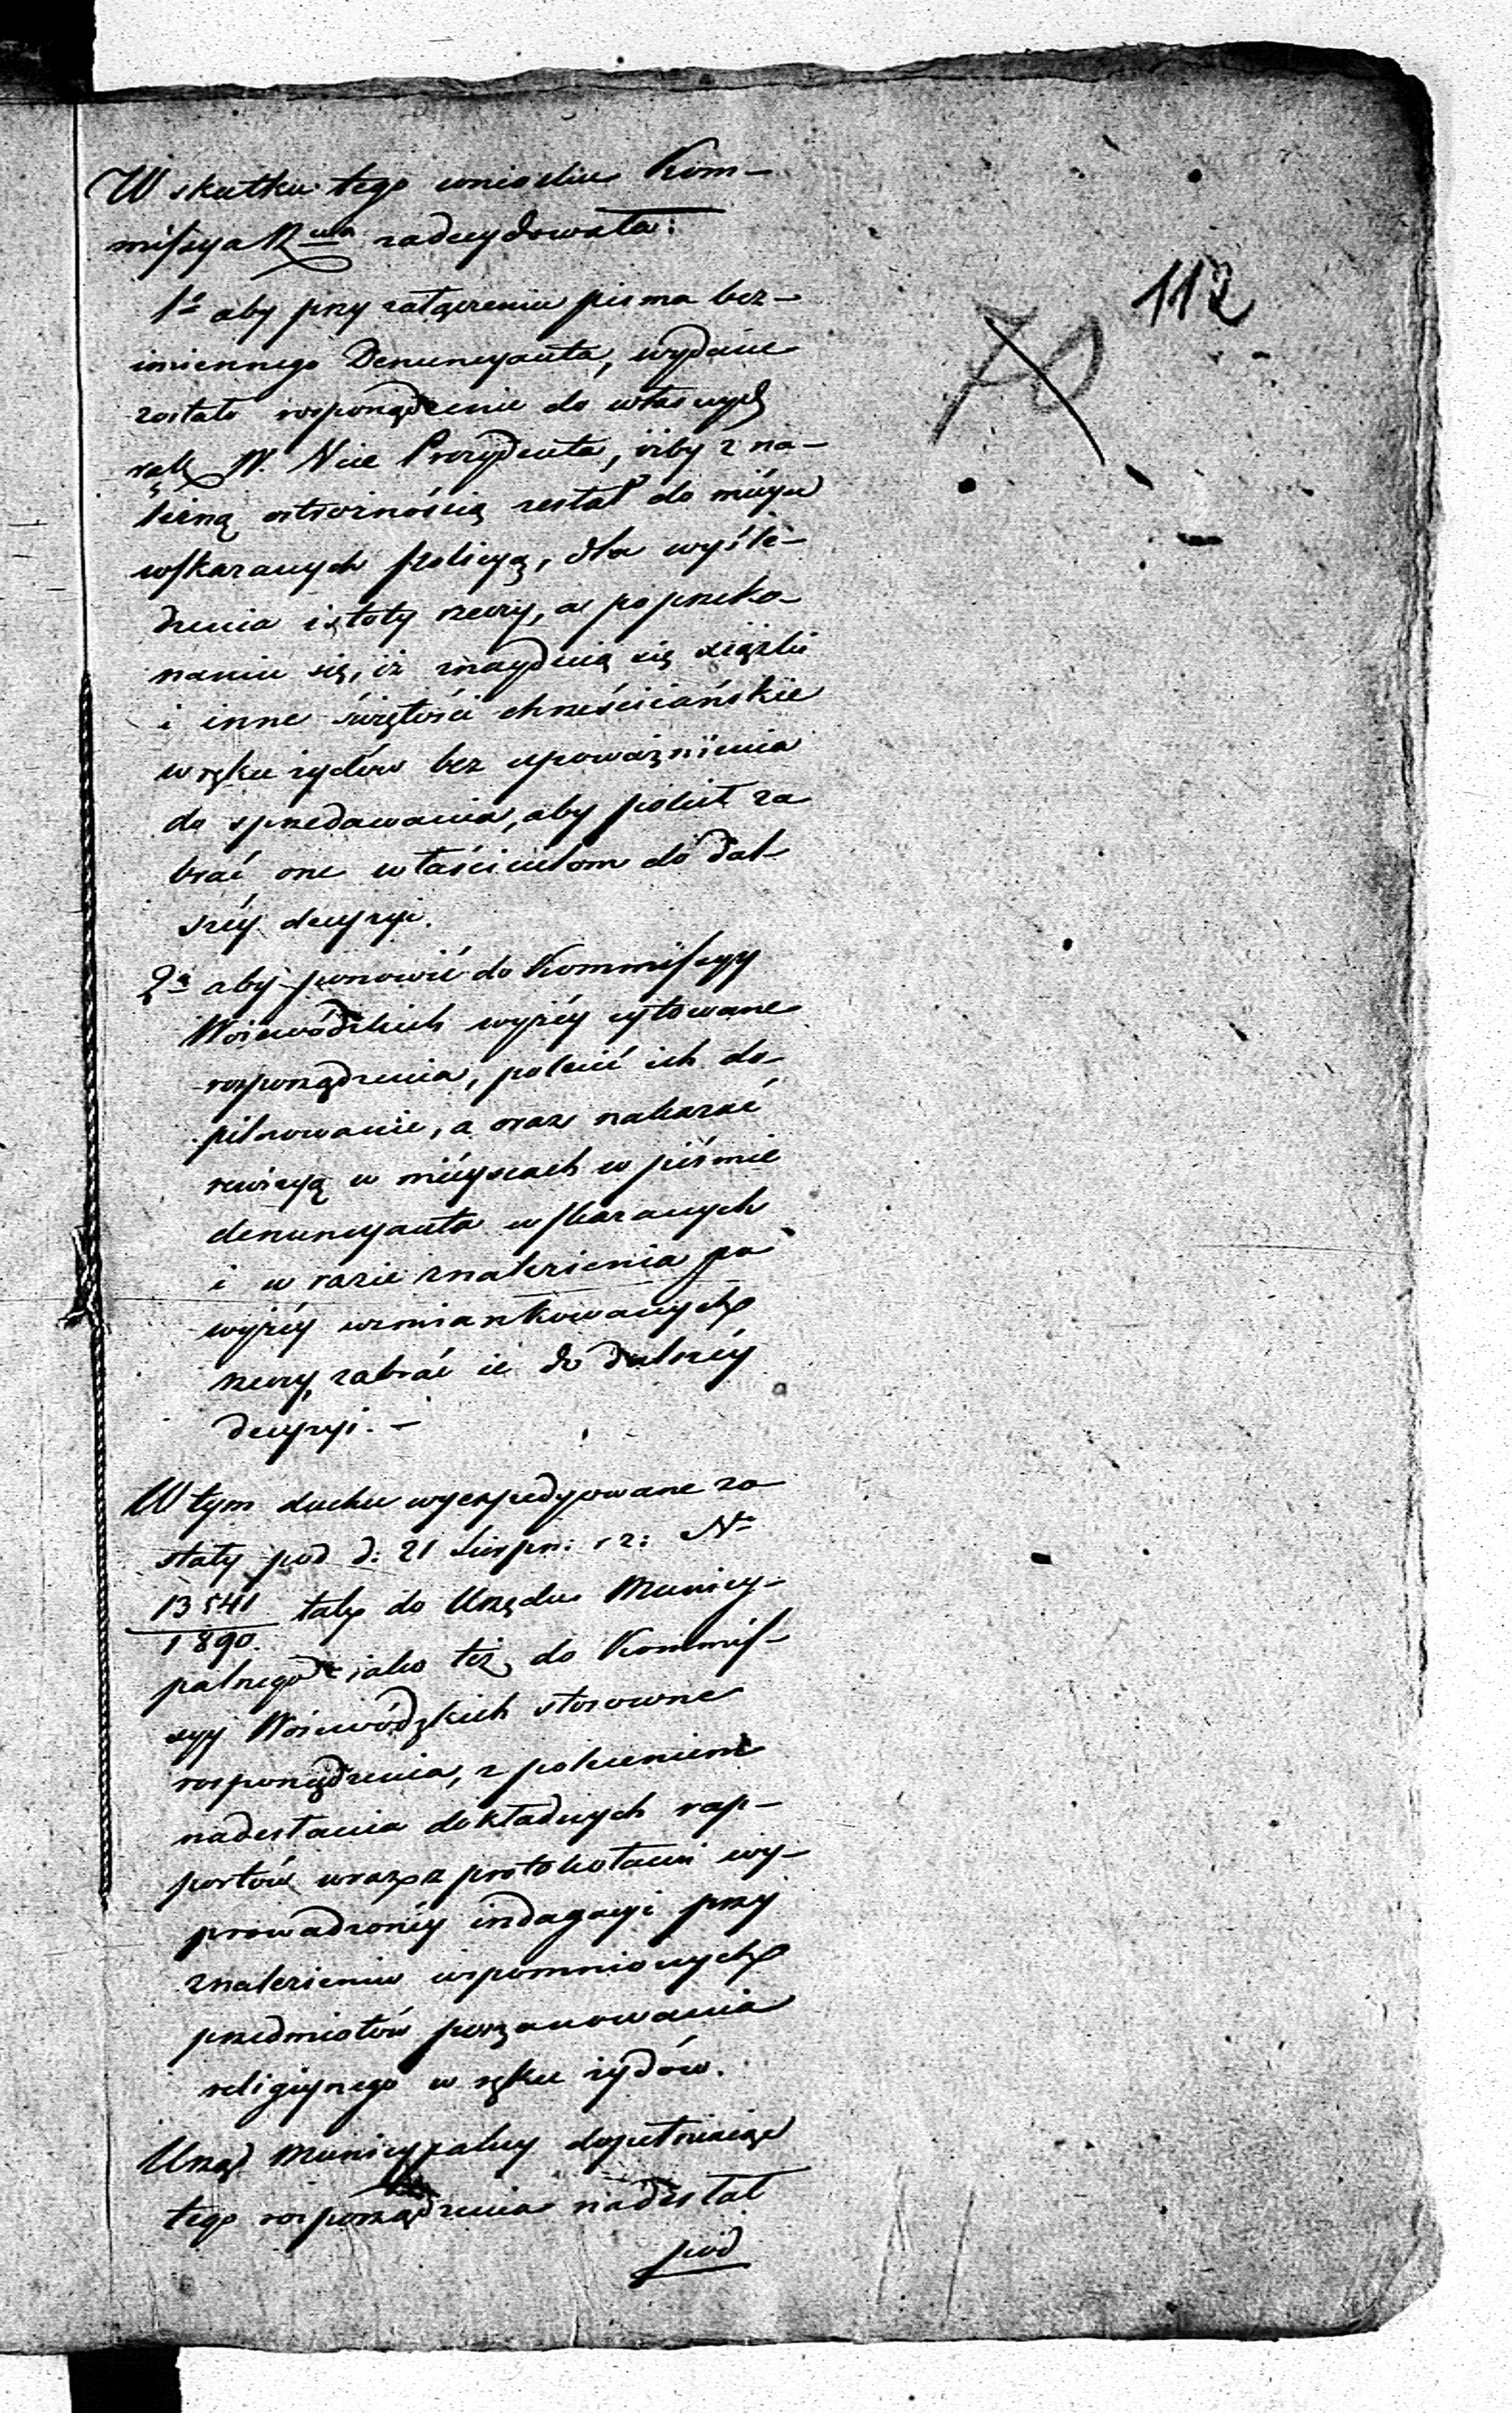 W skutku tego wniosku Kom-
missya R<sup>wa</sup> zadecydowała:
112
1<sup>o</sup> aby przy załączeniu pisma bez-
imiennego Denuncyanta, wydane
zostało rosporządzenie do własnych
rąk W. Vice Prezydenta, iżby z na-
leżną ostrożnością zesłał do mieysc
wskazanych policyą, dla wyśle-
dzenia istoty rzeczy, a po przeko-
naniu się, iż znaydują się książki
i inne świętości chrześciańskie
w ręku żydów bez upoważnienia
do sprzedawania, aby polecił za
brać one właścicielom do dal-
széy decyzyi.
2<sup>o</sup> aby ponowić do Kommissyy
Woiewódzkich wyżéy cytowane
rozporządzenia, polecić ich do-
pilnowanie, a oraz nakazać
rewizyą w mieyscach w piśmie
denuncyanta wskazanych
i w razie znalezienia po
wyżéy wzmiankowanych
rzeczy, zabrać ie do dalszéy
decyzyi. —
W tym duchu wyexpedyowane zo
stały pod d: 21 Sierpn: r: N<sup>o</sup>
13541/1890. tak do Urzędu Municy-
palnego iako téż do Kommis-
syy Woiewódzkich stosowne
rosporządzenia, z poleceniem
nadesłania dokładnych rap-
portów wraz z protokołami wy-
prowadzonéy indagacyi przy
znalezieniu wspomnionych
przedmiotów poszanowania
religiynego w ręku żydów.
Urząd Municypalny dopełniaiąc
tego rosporządzenia nadesłał
pod